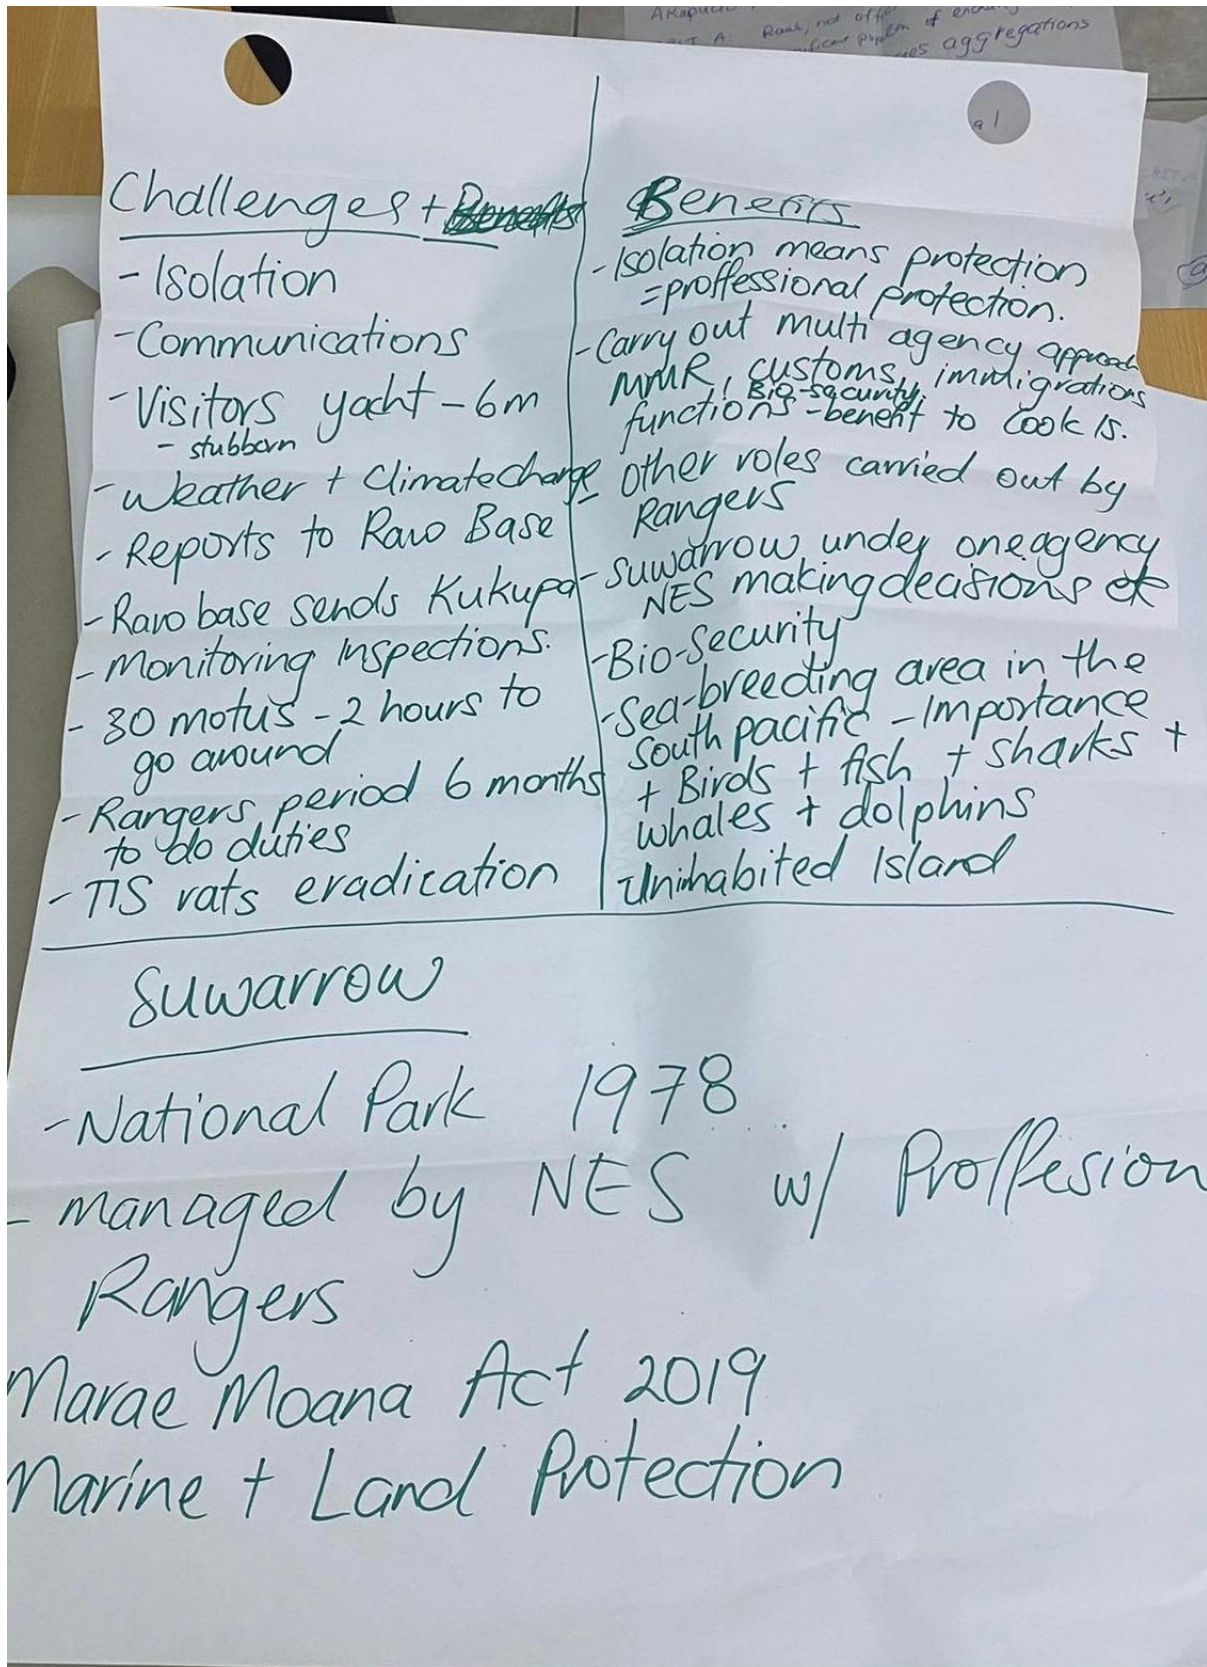 aggregations
Challenges +
- Isolation
- Communications
- Visitors yacht - 6m
- stubborn
- Weather + Climate change
- Reports to Raro Base
- Raro base sends Kukupa
- Monitoring Inspections.
- 30 motus - 2 hours to
go around
- Rangers period 6 months
to do duties
- TIS rats eradication
Benefits
- Isolation means protection
= proffessional protection.
- Carry out multi agency approach
MMR, customs, immigrations
Bio-security,
functions - benefit to Cook Is.
- other roles carried out by
Rangers
- Suwarrow under one agency
NES making decisions
- Bio-Security
- Sea-breeding area in the
south pacific - Importance
+ Birds + fish + sharks +
whales + dolphins
- Uninhabited Island
Suwarrow
- National Park 1978
- managed by NES w/ Proffesion
Rangers
Marae Moana Act 2019
Marine + Land Protection